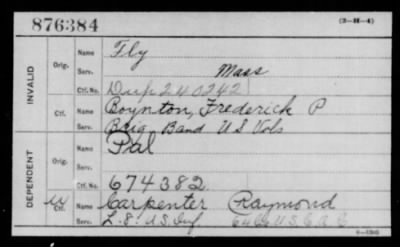 876384
(3-H-4)
INVALID
Orig.
Name Fly
Serv. Mass
Ctf. No. Dup 240242
Ctf.
Name Boynton, Frederick P
Serv. Brig Band U S Vols
DEPENDENT
Orig.
Name Pal
Serv.
Ctf. No. 674382
Ctf.
Name Carpenter Raymond
Serv. L. 8" U.S. Inf. 64 Co U.S. C A C